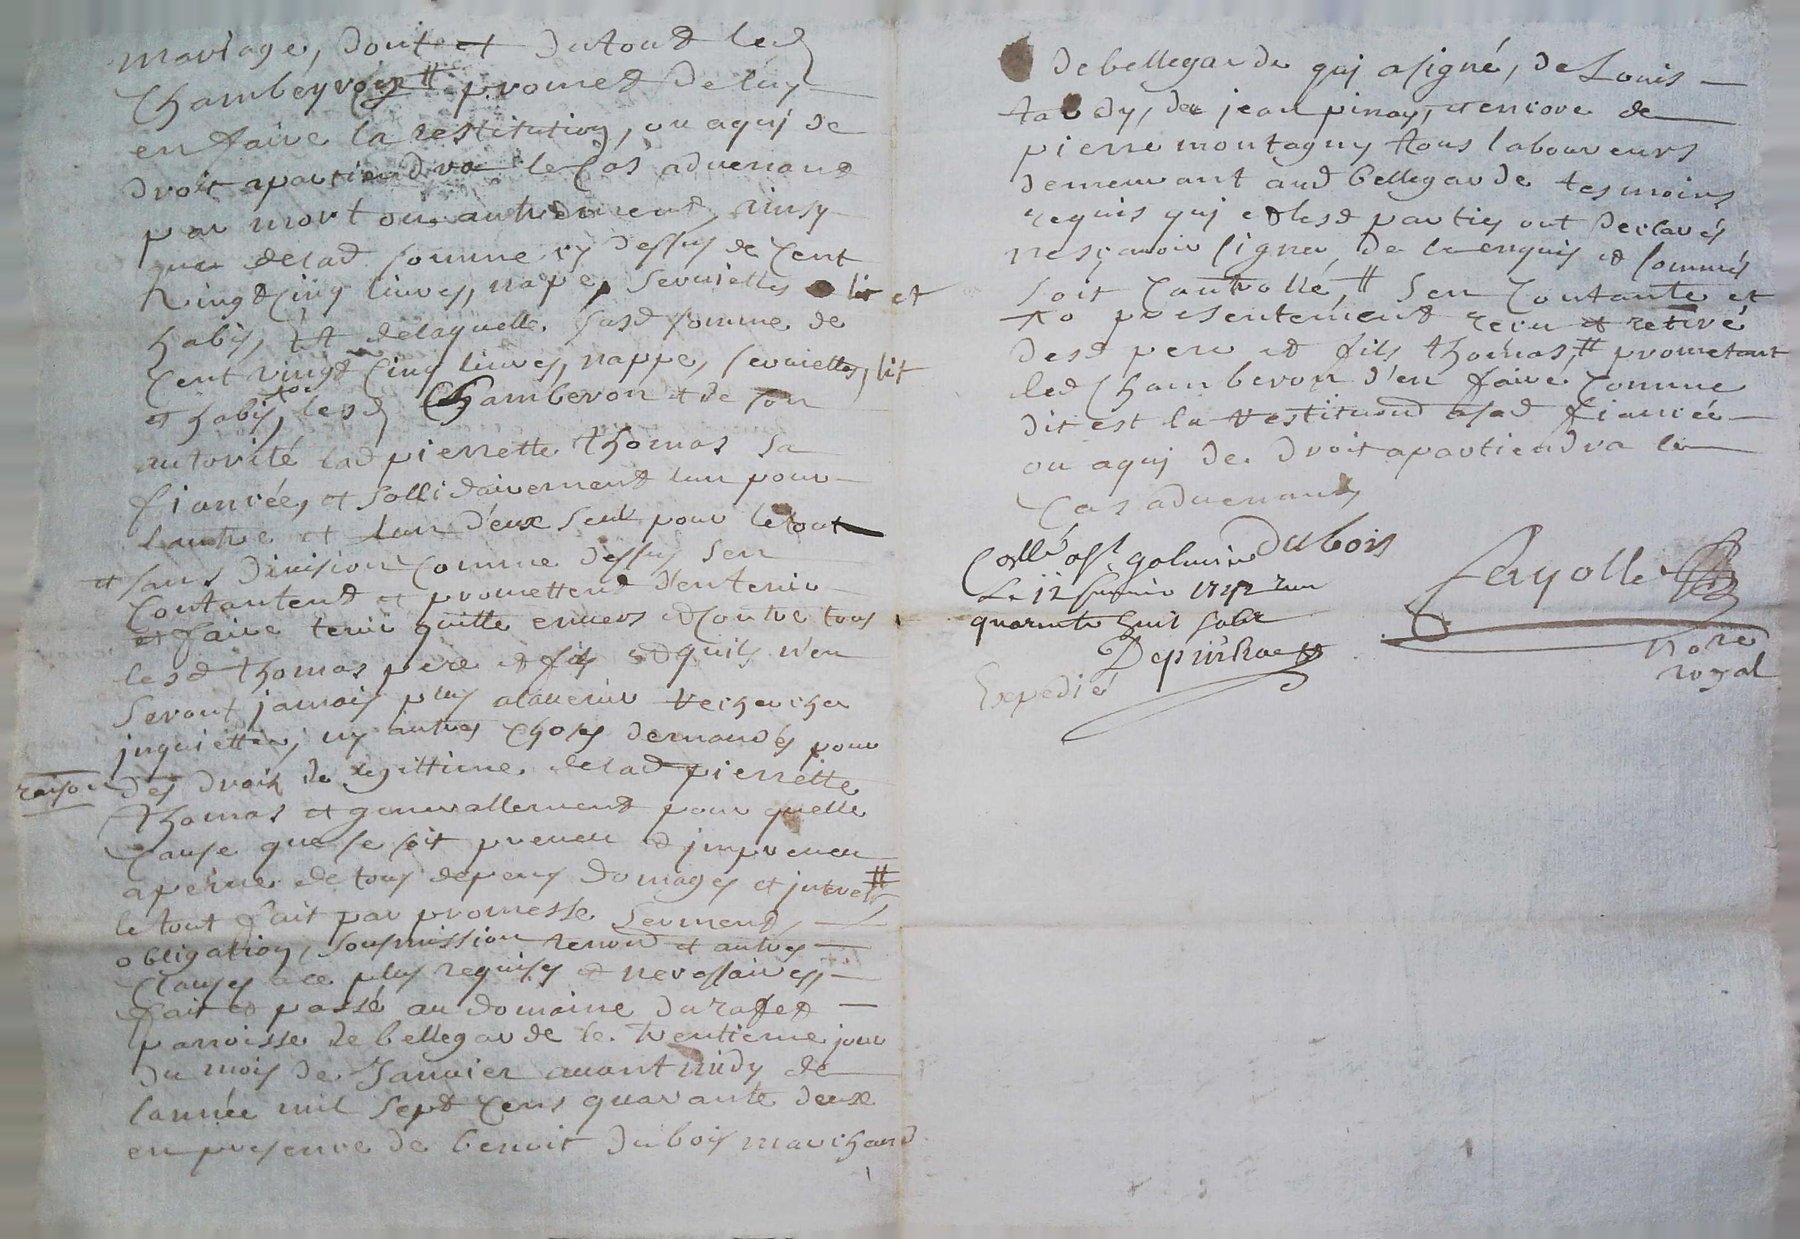 mariage, dont et du tout led
Chambeyron # promet de luy
en faire la restitution, ou a quj de
droit apartiendra le Cas advenant
par mort ou autrement, ainsy
que delad somme cy dessus de Cent
Vingt Cinq liures, nape, seruiettes lit et
habis, Et delaquelle susd somme de
Cent vingt Cinq liures, nappe, seruiettes, lit
et habis, lesd Chamberon et de son
autorité lad pierrette thomas sa
fiancée, et sollidairement lun pour
lautre et lun d'eux seul pour le tout
et sans division Comme dessus sen
Contantent et promettent d'en tenir
et faire tenir quitte envers et Contre tous
lesd thomas pere et fils et quils n'en
seront jamais plus alauenir recherches
jnquiettes, ny autres Choses demandés pour
raison
des drois de legittime delad pierrette
thomas et generallement pour quelle
Cause que se soit preueu et jmpreueu
a peine de tous depens domages et jnterest #
le tout fait par promesse serment,
obligation, soumission renond et autres
Clauses a ce plus requises et necessaires,
fait et passé au domaine du rafet
parroisse de bellegarde le trentieme jour
du mois de Januier auant midy de
lannée mil sept Cens quarante deux
en presence de benoit dubois marchand
de bellegarde quj a signé, de Louis
tardy, de jean pinay, et encore de
pierre montagny tous laboureurs
demeurant aud bellegarde tesmoins
requis quj et lesd parties ont declarés
ne sçauoir signer, de ce enquis et sommés
soit Controllé, # sen Contante et
a presentement receu et retiré
desd pere et fils thomas, # prometant
led Chamberon d'en faire Comme
dit est la restituon a sad fiancée
ou a quj de droit apartiendra le
Cas advenant
Dubois
Collé a St galmier
Le 12 feurier 1742 Reçu
quarante huit sols
Fayolle
no.re
royal
Expedié